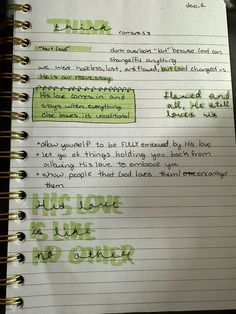 dec. 1
THINK
think
romans 5:8
"but God"
don't overlook "but" because God can
change/fix anything
we were hopeless, lost, and flawed, but God changed us
He is our rescue story
His love comes in and
stays when everything
else leaves. its unconditional
flawed and
all, He still
loves us
• allow yourself to be FULLY embraced by His love
• let go of things holding you back from
allowing His love to embrace you
• show people that God loves them/ encourage
them
HIS LOVE
His love
IS LIKE
is like
NO OTHER
no other